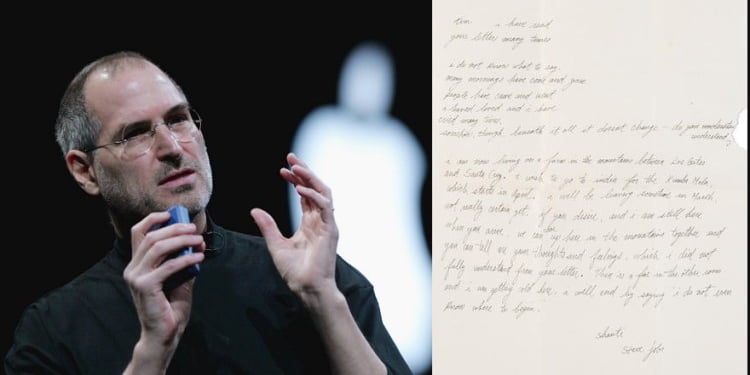 tim i have read
your letter many times
i do not know what to say.
many mornings have come and gone
people have came and went
i haved loved and i have
cried many times.
somehow, though, beneath it all it doesnt change - do you
understand?
i am now living on a farm in the mountains between Los Gatos
and Santa Cruz. i wish to go to india for the Kumba Mela,
which starts in April. i will be leaving sometime in March,
not really certain yet. if you desire, and i am still here
when you arive we can be up here in the mountains together and
you can tell me your thoughts and feelings, which i did not
fully understand from your letter. There is a fire in the other room
and i am getting cold here. i will end by saying i do not even
know where to begin.
shanti
steve jobs